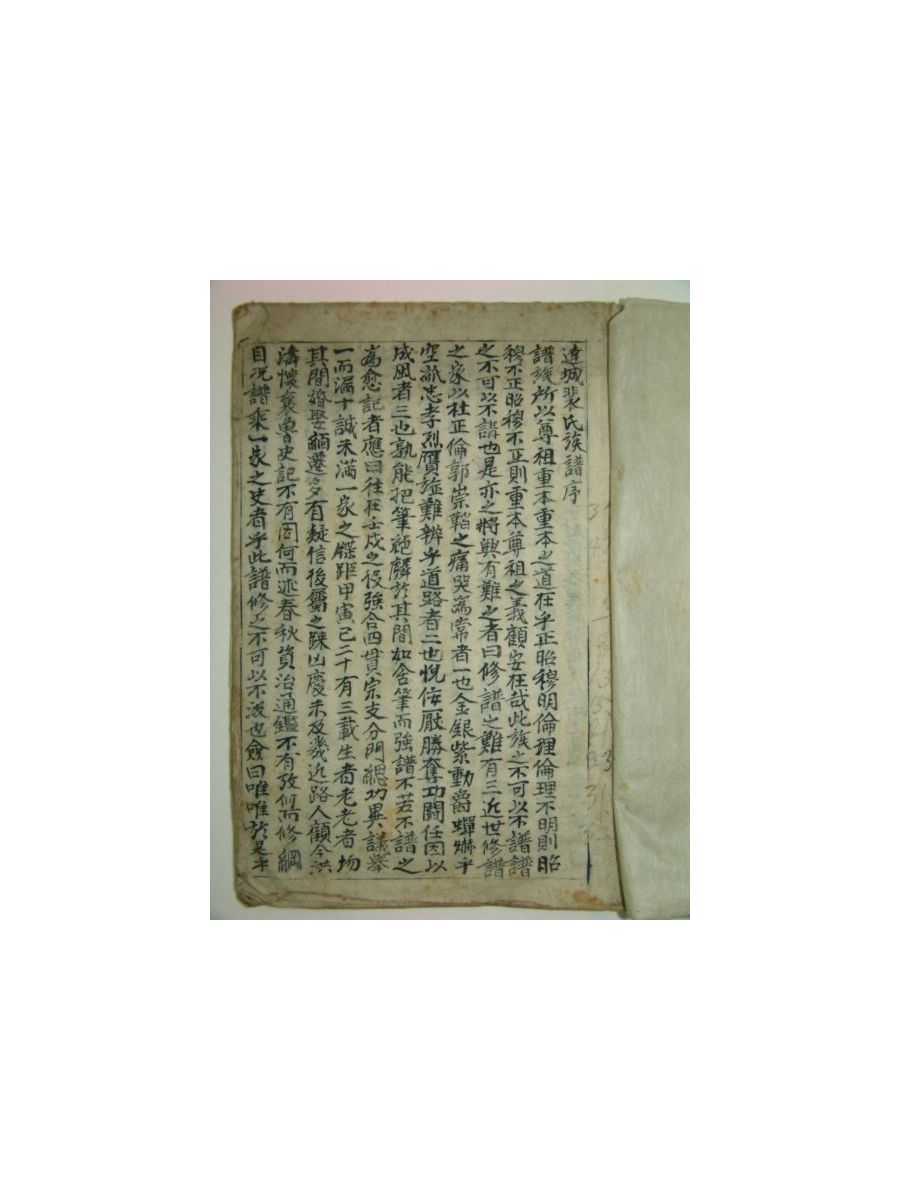 達城裴氏族譜序
譜族所以尊祖重本重本之道在乎正昭穆明倫理倫理不明則昭
穆不正昭穆不正則重本尊祖之義顧安在哉此族之不可以不譜譜
之不可以不講也是亦之將興有難之者曰修譜之難有三近世修譜
之家以杜正倫郭崇韜之痛哭為常者一也金銀紫勳爵蟬爀乎
空誥忠孝烈贗旌難辨乎道路者二也悅侫厭勝奪功鬪任因以
成風者三也孰能把筆於其間如舍筆而強譜不若不譜之
為愈記者應曰往在壬戌之役強合四貫宗支分門功異議舉
一而漏十誠未滿一家之牒距甲寅已二十有三載生者老老者圽
其間婚娶緬遷多有疑信後屬之踈凶慶未及幾近路人顧今洪
濤懷襄魯史記不有因何而述春秋資治通鑑不有攷何而修綱
目況譜乘一家之史者乎此譜修之不可以不汲也僉曰唯唯於是